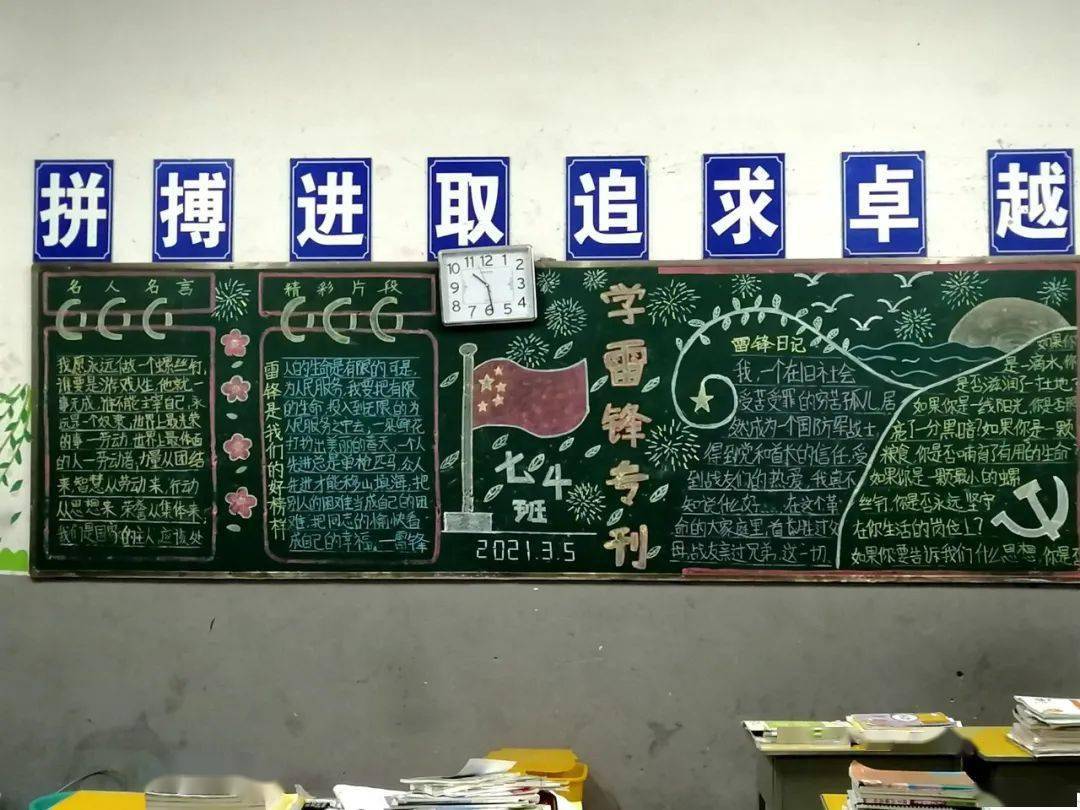 拼搏进取追求卓越
名人名言
我愿永远做一个螺丝钉,
谁要是游戏人生,他就一
事无成,谁不能主宰自己,永
远是一个奴隶,世界上最光荣
的事—劳动,世界上最体面
的人—劳动者,力量从团结
来,智慧从劳动来,行动
从思想来,荣誉从集体来,
我们是国家的主人,应该处
精彩片段
雷锋是我们的好榜样
人的生命是有限的,可是,
为人民服务,我要把有限
的生命,投入到无限的为
人民服务之中去,一朵鲜花
打扮不出美丽的春天,一个人
先进总是单枪匹马,众人
先进才能移山填海,把
别人的困难当成自己的困
难,把同志的愉快看
成自己的幸福。—雷锋
10 11 12 1 2
9 3
8 7 6 5 4
七4
班
2021.3.5
学雷锋专刊
雷锋日记
我,一个在旧社会
受苦受罪的穷苦孤儿,居
然成为一个国防军战士
得到党和首长的信任,受
到战友们的热爱,我真不
知说什么好……在这个革
命的大家庭里,首长胜过父
母,战友亲过兄弟,这一切
如果你
是一滴水,你
是否滋润了一寸土地?
如果你是一线阳光,你是否照
亮了一分黑暗?如果你是一颗
粮食,你是否哺育了有用的生命?
如果你是一颗最小的螺
丝钉,你是否永远坚守
在你生活的岗位上?
如果你要告诉我们什么思想,你是否